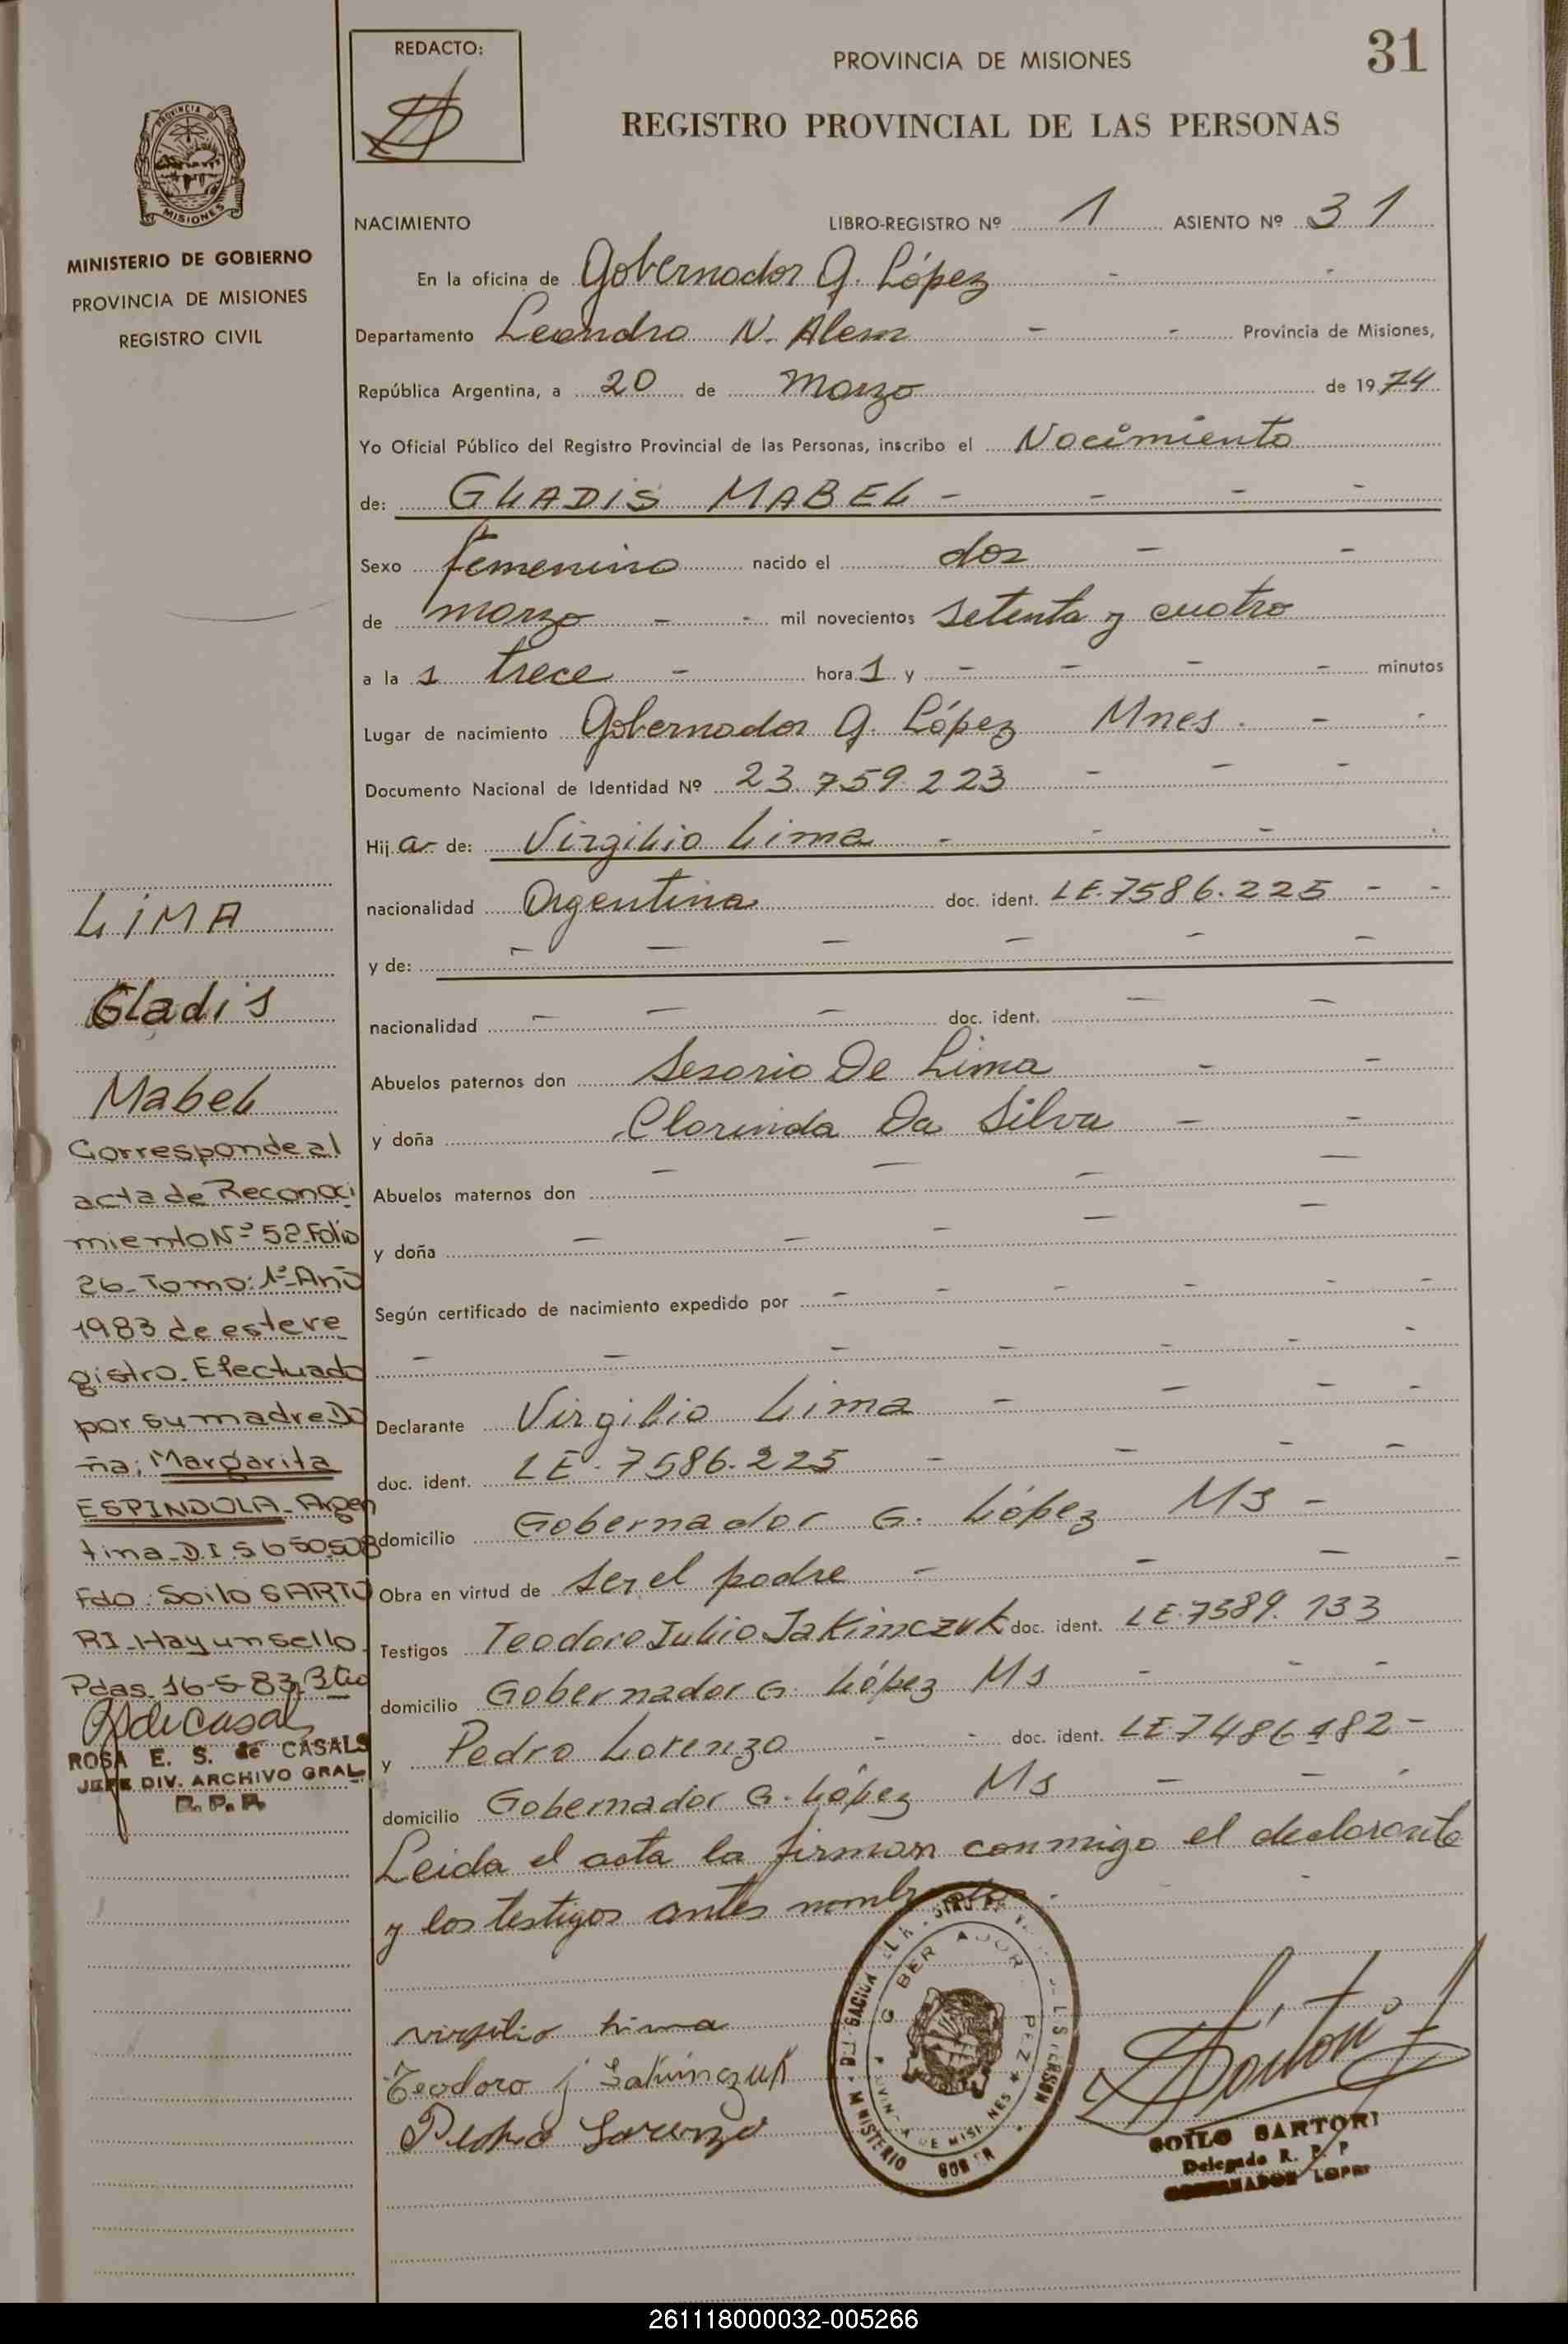 REDACTO:
PROVINCIA DE MISIONES
31
REGISTRO PROVINCIAL DE LAS PERSONAS
PROVINCIA DE
MISIONES
MINISTERIO DE GOBIERNO
PROVINCIA DE MISIONES
REGISTRO CIVIL
NACIMIENTO LIBRO-REGISTRO Nº 1 ASIENTO Nº 31
En la oficina de Gobernador G. López - -
Departamento Leandro N. Alem - - Provincia de Misiones,
República Argentina, a 20 de Marzo de 1974
Yo Oficial Público del Registro Provincial de las Personas, inscribo el Nacimiento
de: GLADIS MABEL - - - -
Sexo femenino nacido el dos - -
de marzo - - mil novecientos setenta y cuatro
a la s trece - hora s y - - - - minutos
Lugar de nacimiento Gobernador G. López Mnes. - -
Documento Nacional de Identidad Nº 23.759.223 - - -
Hij a de: Virgilio Lima - - - -
nacionalidad Argentina doc. ident. LE.7586.225 - -
y de: - - - - - -
nacionalidad - - - doc. ident. - -
Abuelos paternos don Sesorio De Lima - -
y doña Clorinda Da Silva - -
Abuelos maternos don - - - -
y doña - - - - -
Según certificado de nacimiento expedido por - - - - -
- - - - - - -
Declarante Virgilio Lima - - - -
doc. ident. LE. 7586.225 - - - -
domicilio Gobernador G. López Ms -
Obra en virtud de ser el padre - - - -
Testigos Teodoro Julio Jakimczuk doc. ident. LE.7589.133
domicilio Gobernador G. López Ms - - -
y Pedro Lorenzo - - doc. ident. LE.7486182 -
domicilio Gobernador G. López Ms - - -
Leida el acta la firman conmigo el declarante
y los testigos antes nombrados.
virgilio lima
Teodoro j Jakimczuk
Pedro Lorenzo
Sartori
SOILO SARTORI
Delegado R. P. P
GOBERNADOR LOPEZ
LIMA
Gladis
Mabel
Corresponde al
acta de Reconoci
miento Nº 52 Folio
26_Tomo: 1º_Año
1983 de este re_
gistro. Efectuado
por su madre Do
ña; Margarita
ESPINDOLA_Argen
tina_D.I.5650.508
Fdo: Soilo SARTO
RI_Hay un sello.
Pdas. 16-5-83.
ROSA E. S. de CASALS
JEFE DIV. ARCHIVO GRAL.
R. P. P.
261118000032-005266